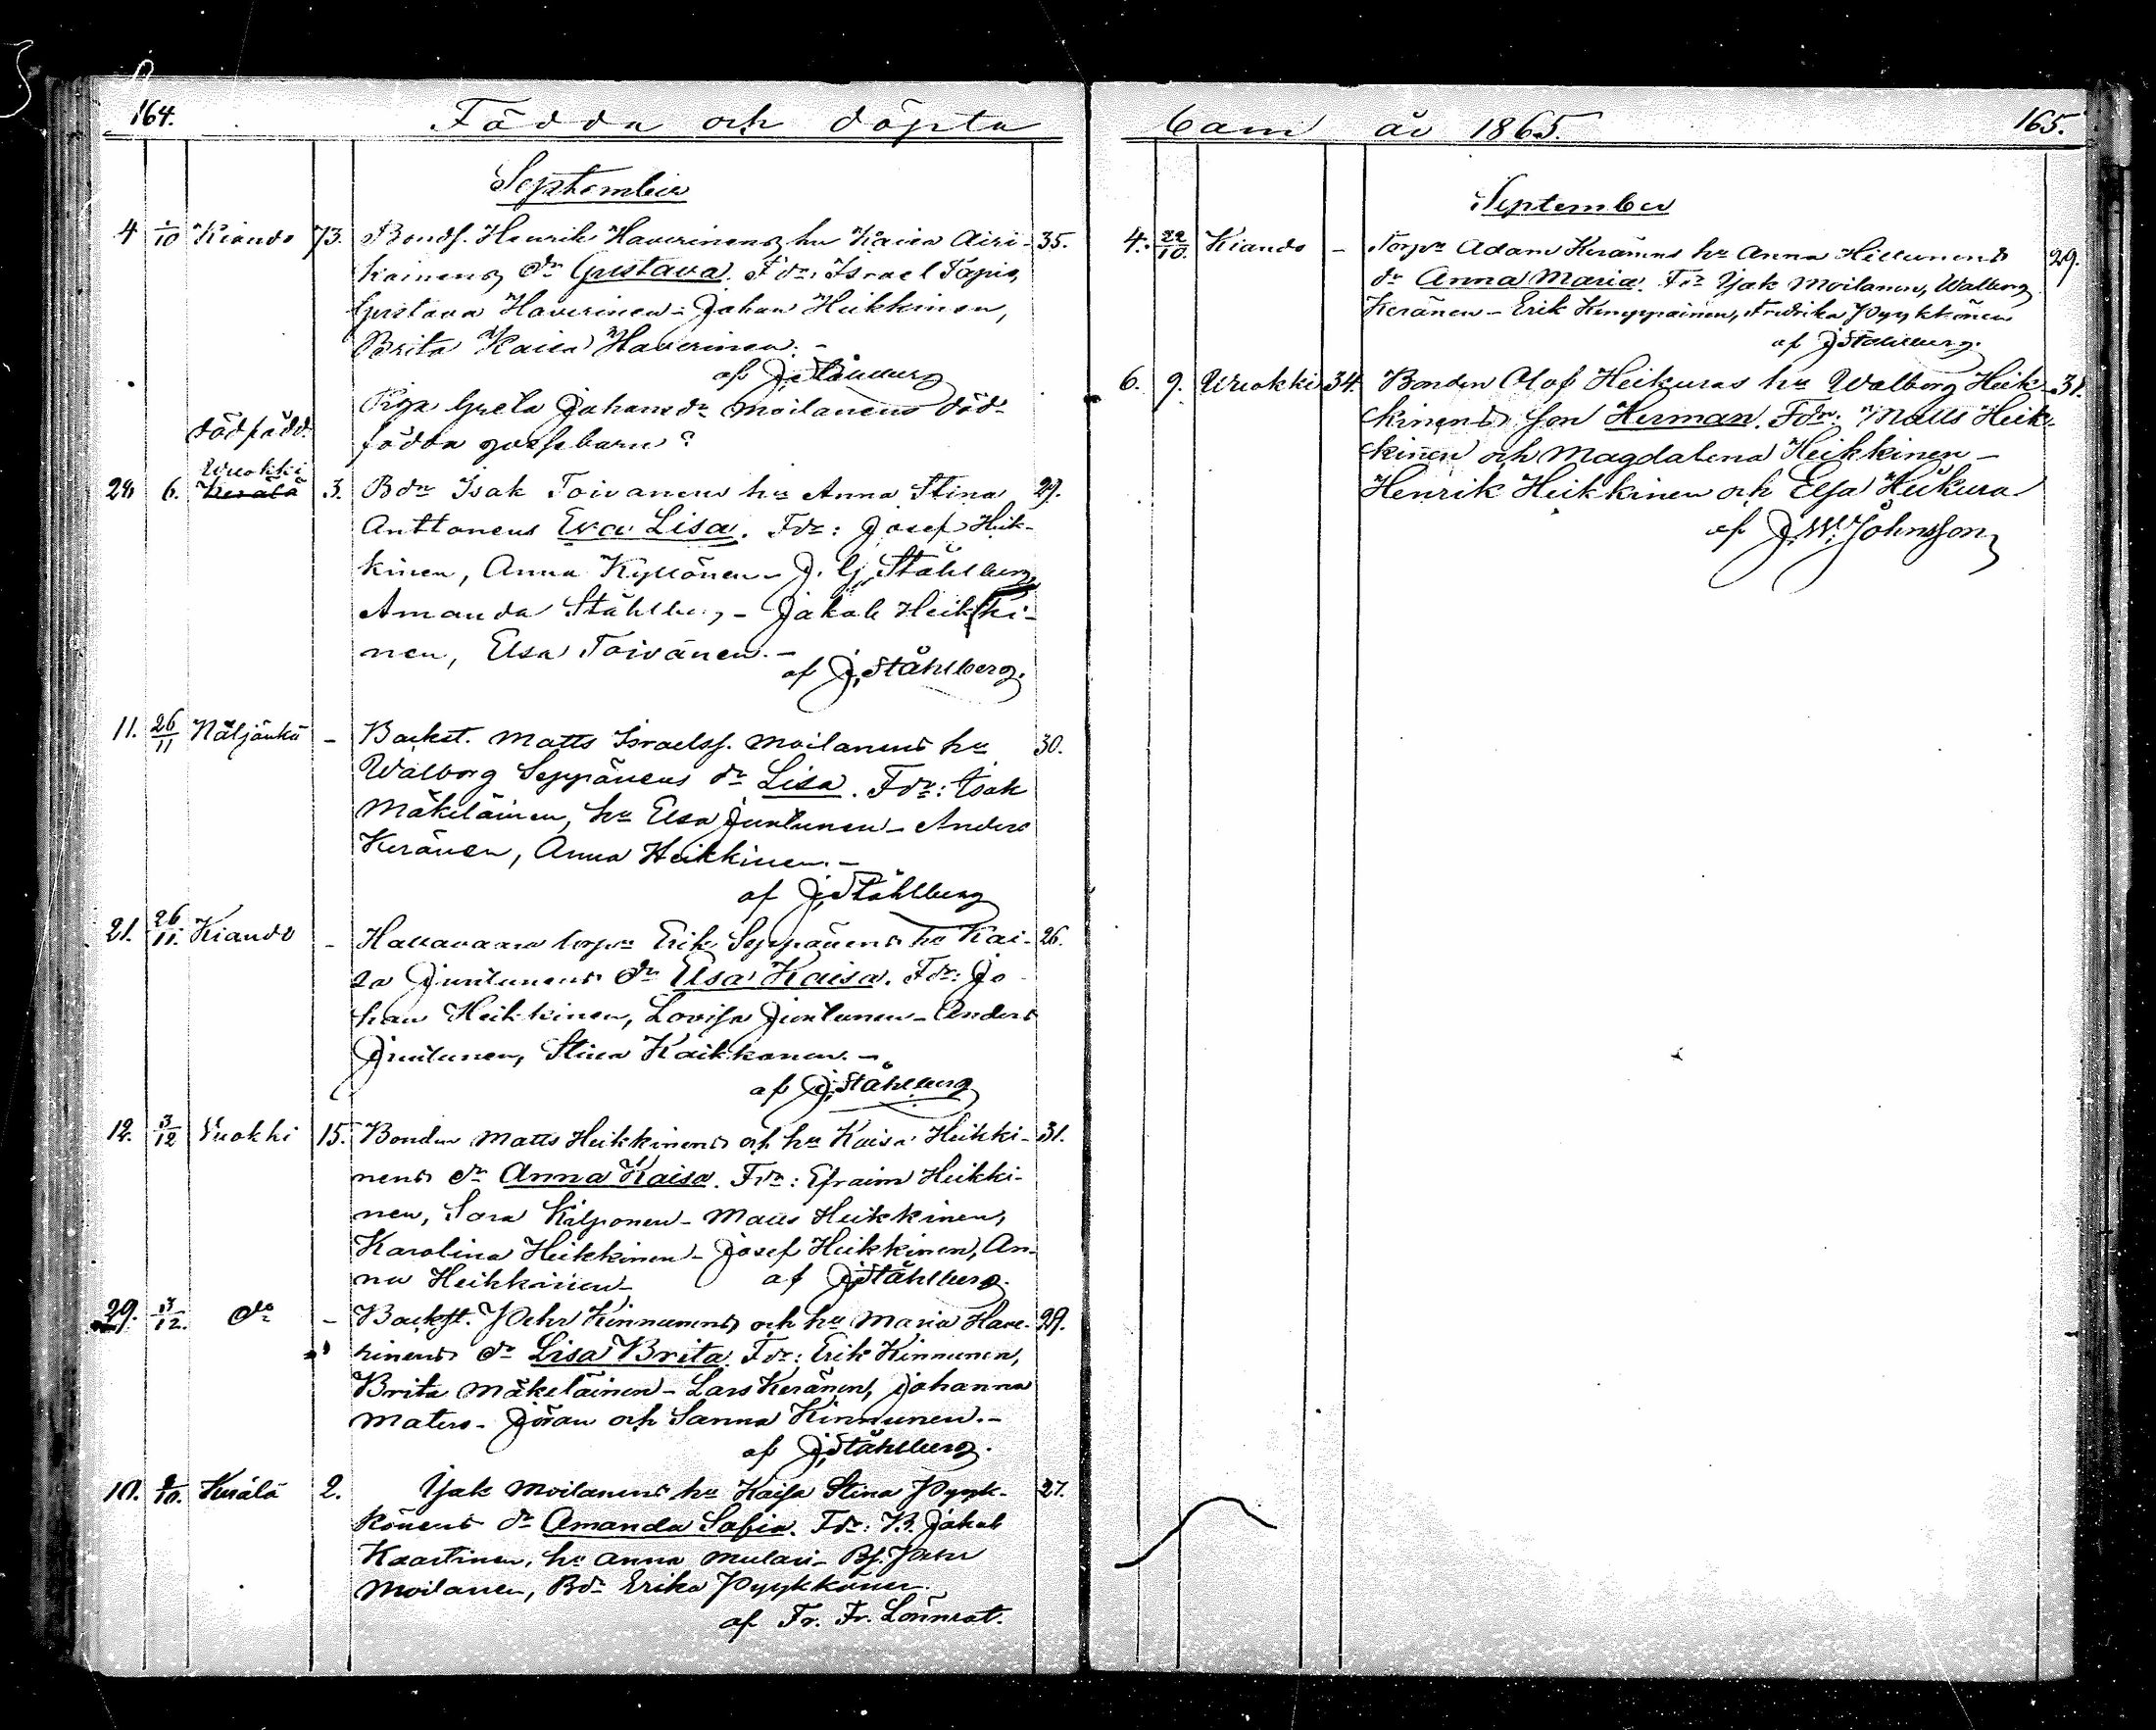 164.
Födda och döpta
September
4 1/10 Kiando 73. Bonds. Henrik Haverinens hu Kaisa Airi- 35.
kainens dr Gustava. Fdr: Israel Tapio,
Gustava Haverinen - Johan Heikkinen,
Brita Kaisa Haverinen. -
af J. Ståhlberg
Piga Greta Johansdr Moilanens död-
dödfödd.
födda gossebarn?
Wuokki
24 6. Kerälä 3. Bdn Isak Toivanens hu Anna Stina 29.
Anttonens Eva Lisa. Fdr: Josef Heik-
kinen, Anna Kyllönen - J. G. Ståhlberg,
Amanda Ståhlberg - Jakob Heikki-
nen, Elsa Toivanen. -
af J. Ståhlberg.
11. 26/11 Näljänkä - Backst. Matts Israelss. Moilanens hu 30.
Walborg Seppänens dr Lisa. Fdr: Isak
Mäkeläinen, hu Elsa Juntunen - Anders
Keränen, Anna Heikkinen. -
af J. Ståhlberg
21. 26/11. Kiando - Hallavaara torpn Erik Seppänens hu Kai- 26.
sa Juntunens dr Elsa Kaisa. Fdr: Jo-
han Heikkinen, Lovisa Juntunen - Anders
Juntunen, Stina Kaikkonen. -
af J. Ståhlberg
12. 3/12 Vuokki 15. Bonden Matts Heikkinens och hu Kaisa Heikki- 31.
nens dr Anna Kaisa. Fdr: Efraim Heikki-
nen, Sara Kilponen - Matts Heikkinen,
Karolina Heikkinen - Josef Heikkinen, An-
na Heikkinen - af J. Ståhlberg.
29. 3/12. do - Backst. Pehr Kinnunens och hu Maria Have- 29.
rinens dr Lisa Brita. Fdr: Erik Kinnunen,
Brita Mäkeläinen - Lars Keränen, Johanna
Matero - Jöran och Sanna Kinnunen. -
af J. Ståhlberg.
10. /10. Kerälä 2. Isak Moilanens hu Kaisa Stina Pyyk- 27.
könens dr Amanda Sofia. Fdr: B. Jakob
Kaartinen, hu Anna Mulari - Bs. Pehr
Moilanen, Bdr Erika Pyykkönen.
af Fr. Fr. Lönnrot.
165.
barn år 1865.
September
4. 22/10. Kiando - Torpn Adam Keränens hu Anna Hiltunens 29.
dr Anna Maria. Fdr Isak Moilanen, Walborg
Keränen - Erik Kemppainen, Fredrika Pyykkönen
af J. Ståhlberg.
6. 9. Wuokki 34. Bonden Olof Heikuras hu Walborg Heik- 31.
kinens son Herman. Fdr: Matts Heik-
kinen och Magdalena Heikkinen -
Henrik Heikkinen och Elsa Heikura
af J. W. Johnsson